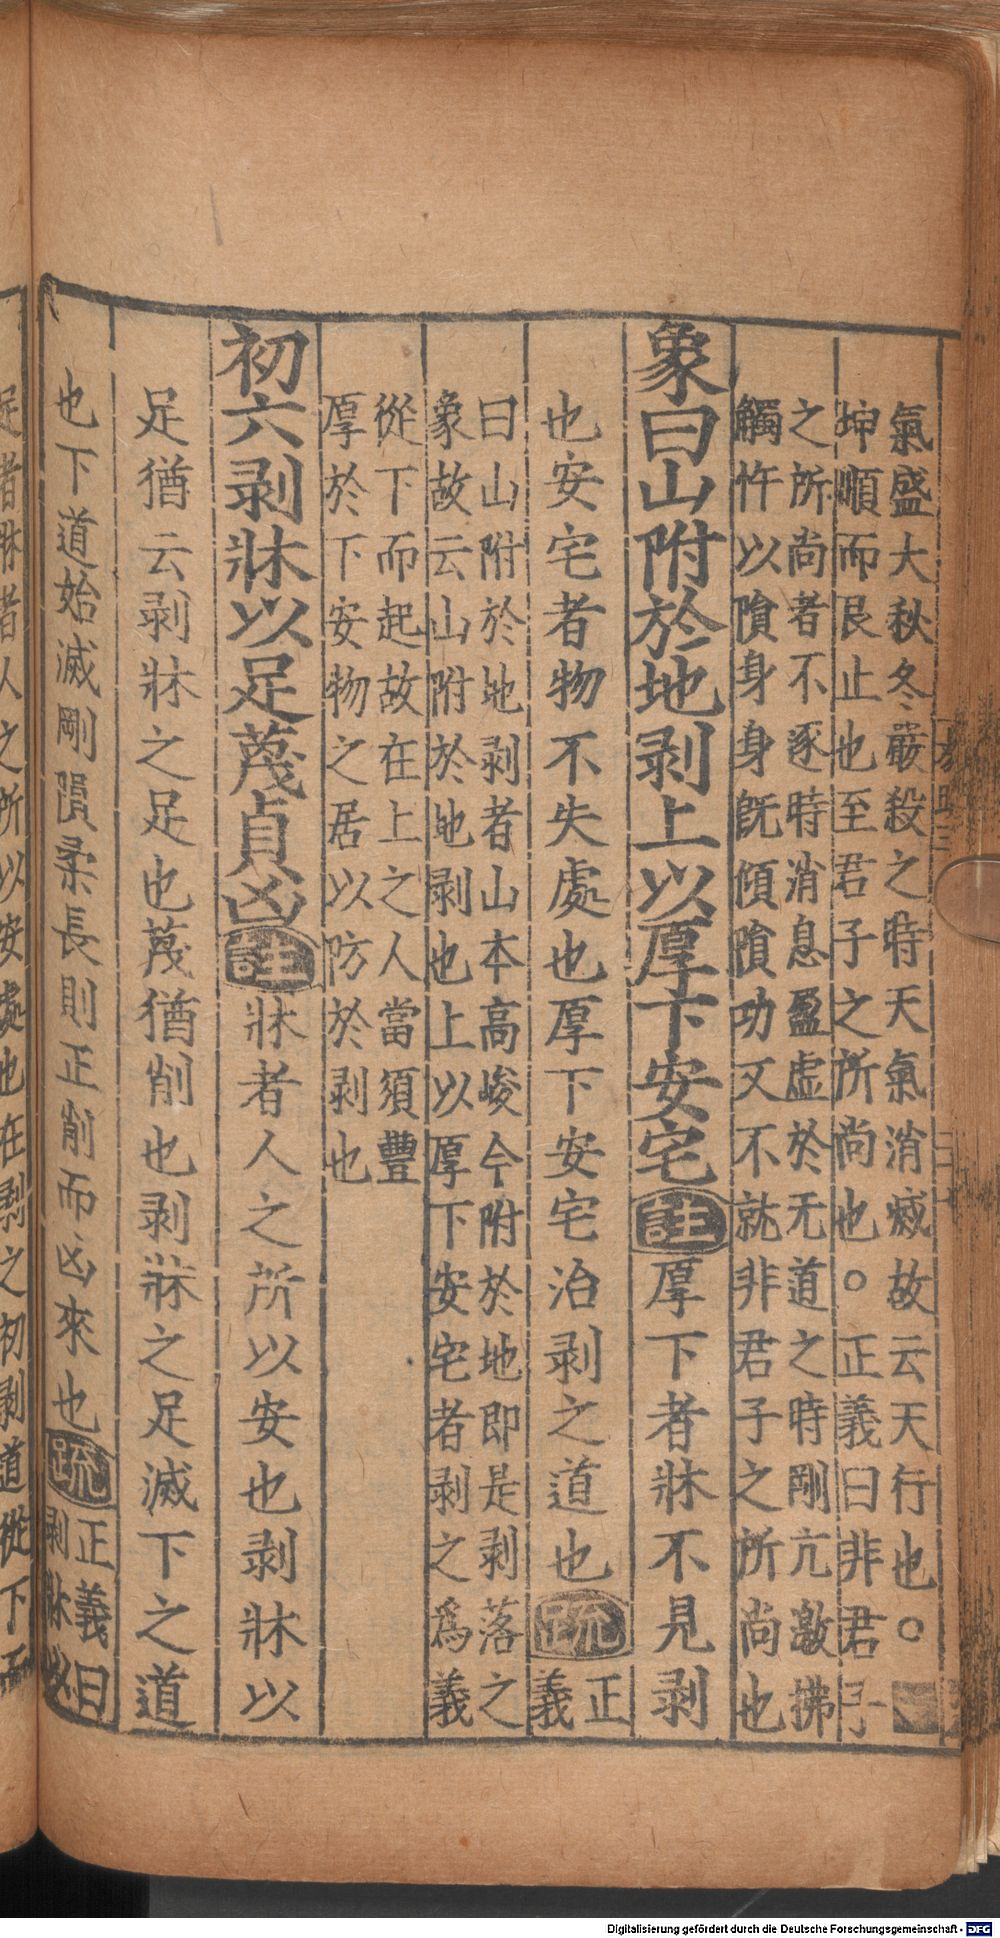 氣盛大秋冬嚴殺之時天氣消滅故云天行也○
坤順而艮止也至君子之所尚也○正義曰非君子
之所尚者不逐時消息盈虛於无道之時剛亢激拂
觸忤以隕身身既傾隕功又不就非君子之所尚也
象曰山附於地剥上以厚下安宅註厚下者牀不見剥
也安宅者物不失處也厚下安宅治剥之道也疏正
義
曰山附於地剥者山本高峻今附於地即是剥落之
象故云山附於地剥也上以厚下安宅者剥之為義
從下而起故在上之人當須豐
厚於下安物之居以防於剥也
初六剥牀以足蔑貞凶註牀者人之所以安也剥牀以
足猶云剥牀之足也蔑猶削也剥牀之足滅下之道
也下道始滅剛隕柔長則正削而凶來也疏正義曰
剥牀以
足者牀者人之所以安處也在剥之初剥道從下而
Digitalisierung gefördert durch die Deutsche Forschungsgemeinschaft - DFG